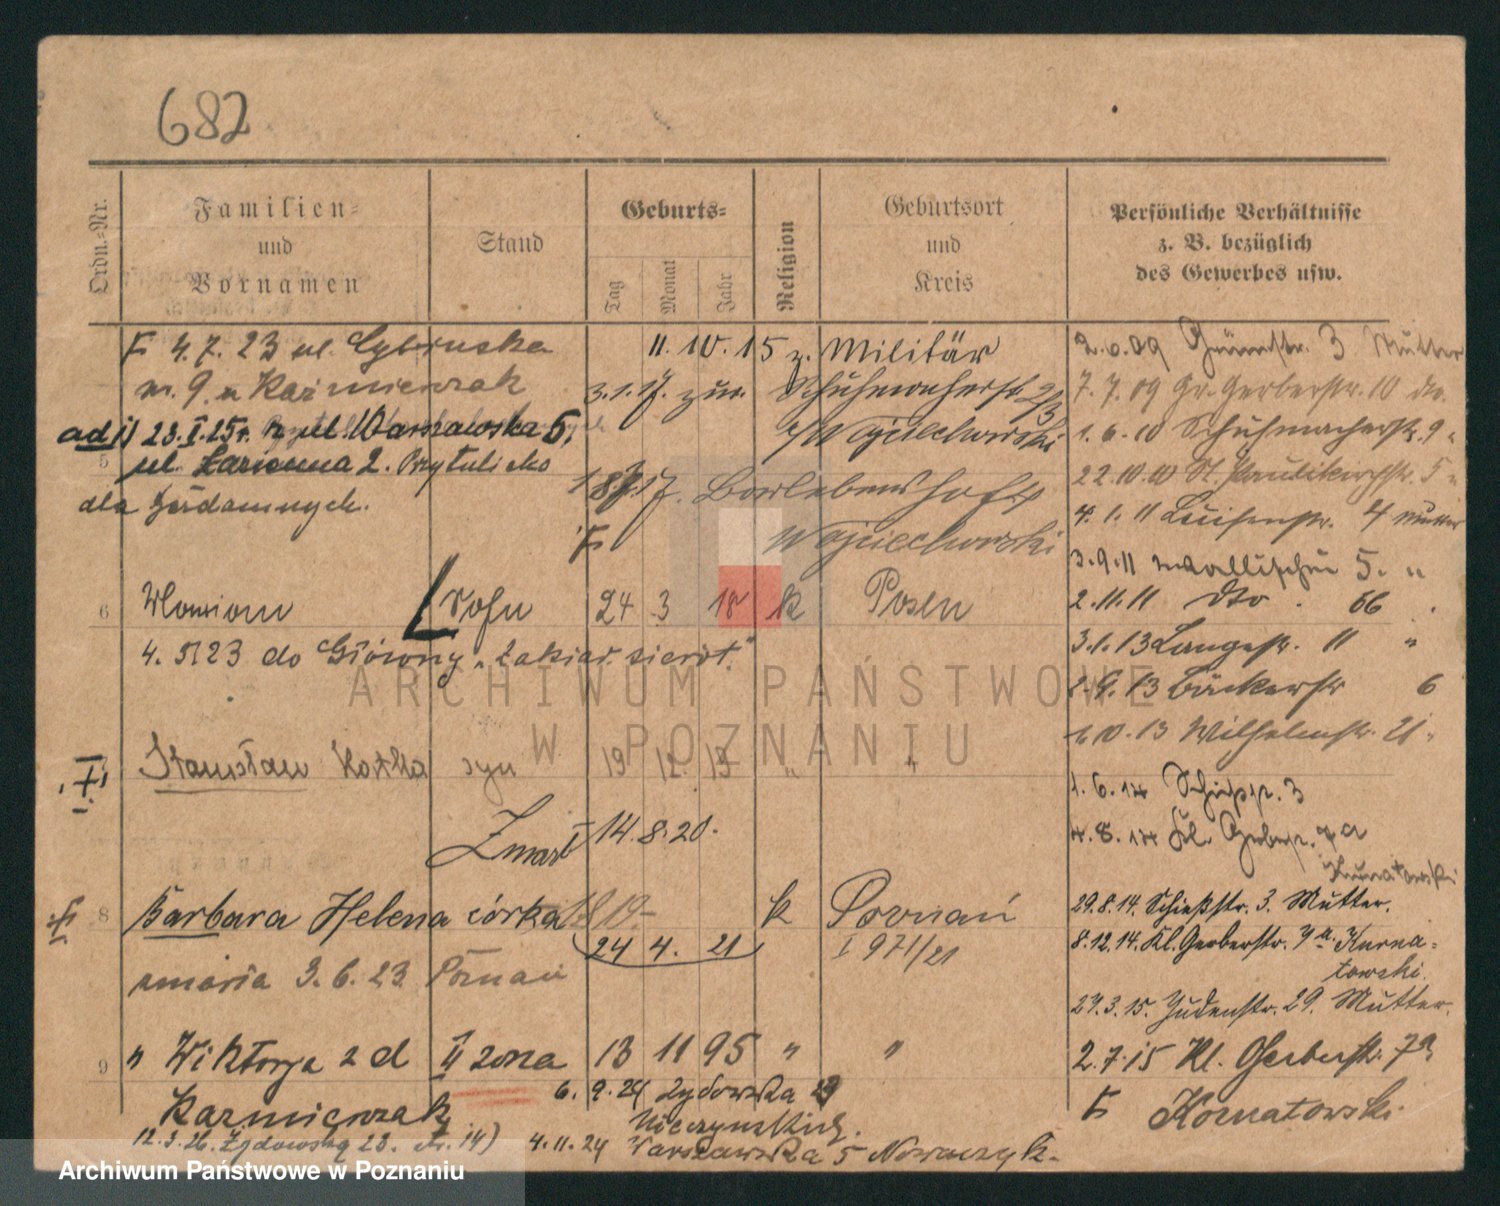 682
Ordn.-Nr.
Familien-
und
Vornamen
Stand
Geburts-
Tag
Monat
Jahr
Religion
Geburtsort
und
Kreis
Persönliche Verhältnisse
z. B. bezüglich
des Gewerbes usw.
F 4.7.23 ul.
nr. 9 u Kaźmierczak
ad 1) 23.I.25r. ul. Warszawska 5,
ul. 2. Przytulisko
dla
11.10.15 z. Militär
3.1.17. zur. Schuhmacherstr.
Wojciechowski
17.
Wojciechowski
5
6
Sohn 24 3 18 k Posen
4.5.23 do Główny
Stanisław Kostka syn 19 12. 13 " "
Zmarł 14.8.20.
8 Barbara Helena córka
24 4. 21
k Poznań
I 971/21
zmarła 3.6.23 Poznań
9 " Wiktorja z d II żona 13 11 95 " "
Kaźmierczak
6. 9.24 Żydowska
12.3.26. Żydowska 23. 14)
4.11.24 Warszawska 5 Nowaczyk.
2.6.09 Grünstr. 3 Mutter
7.7.09 Gr. Gerberstr. 10 dto.
1.6.10 Schuhmacherstr. 9 "
22.10.10 St. Paulikirchstr. 5 "
4.1.11 Luisenstr. 4 Mutter
3.9.11 Wallischei 5. "
2.11.11 dto. 66
3.1.13 Langestr. 11 "
1.9.13 Bäckerstr 6
1.10.13 Wilhelmstr. 21.
1.6.14 3
4.8.14 Kl. Gerberstr. 7a
Kurnatowski
29.8.14. Schießstr. 3. Mutter.
8.12.14. Kl. Gerberstr. 7a Kurna-
towski.
27.3.15. Judenstr. 29. Mutter.
2.7.15 Kl. Gerberstr. 7a
F Kornatowski
ARCHIWUM PAŃSTWOWE
W POZNANIU
Archiwum Państwowe w Poznaniu